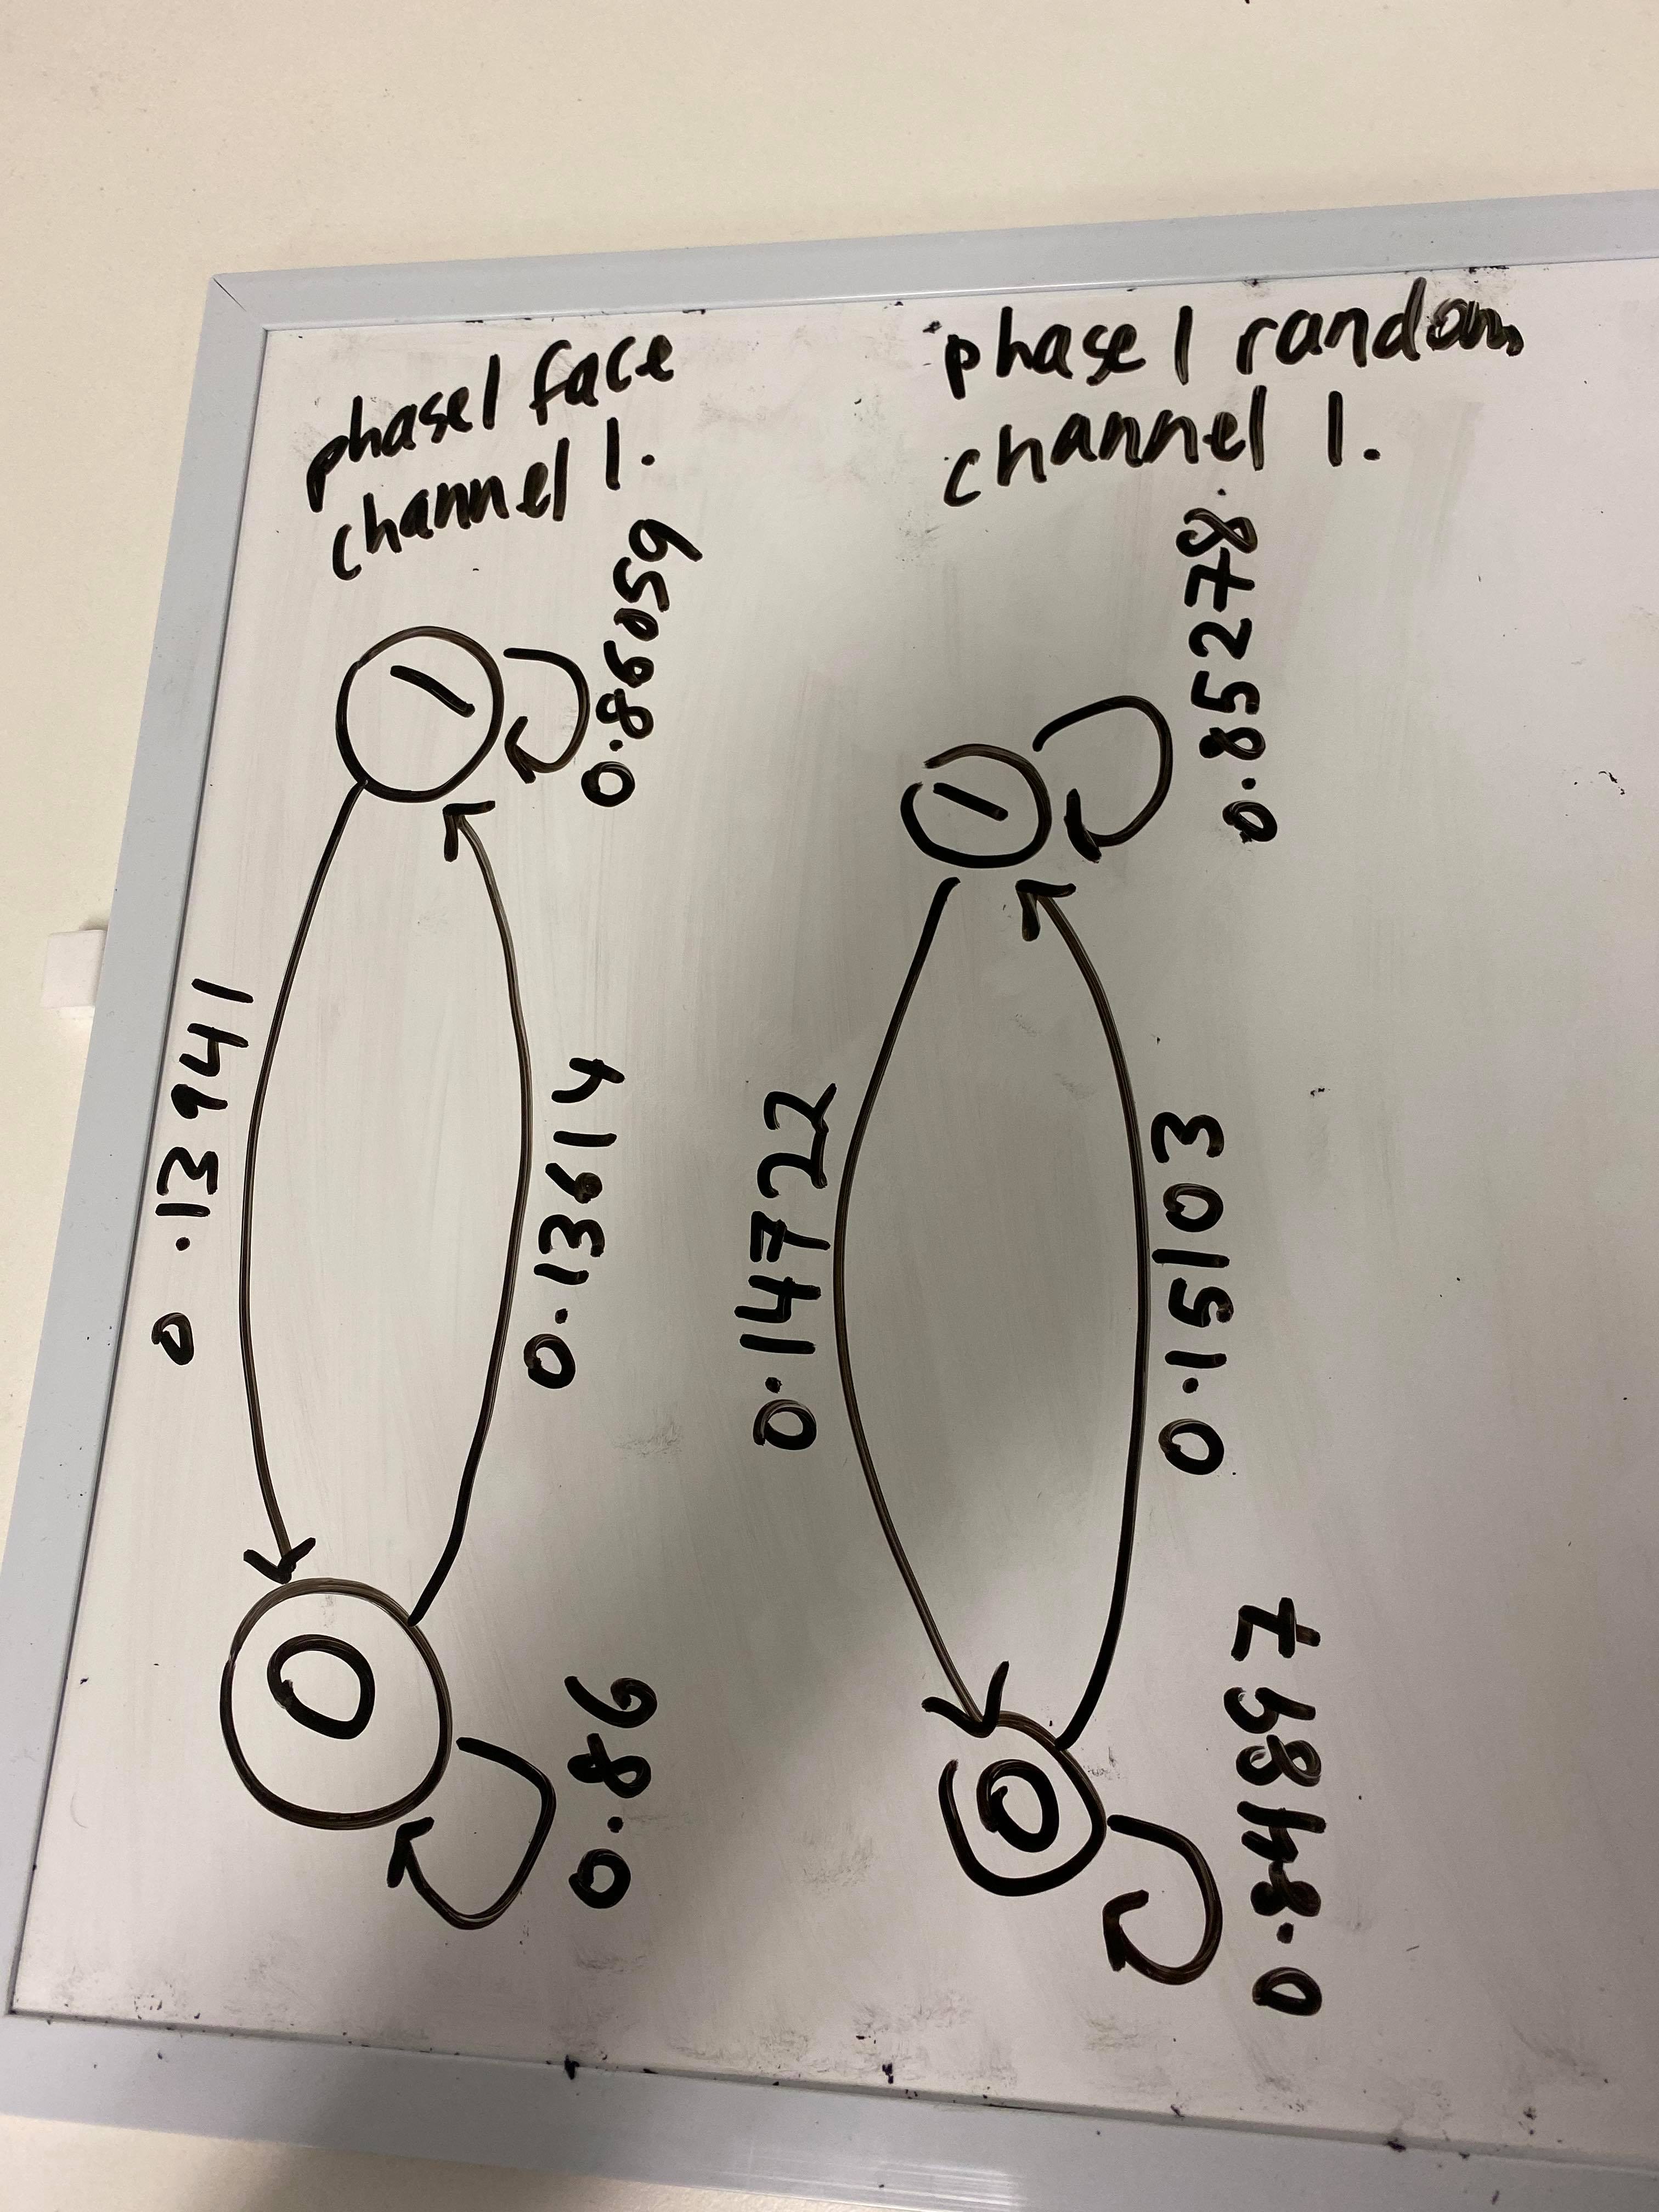 phase1 face
channel 1.
1
0.86059
0.13941
0.13614
0
0.86
phase1 random
channel 1.
1
0.85278
0.14722
0.15103
0
0.84897